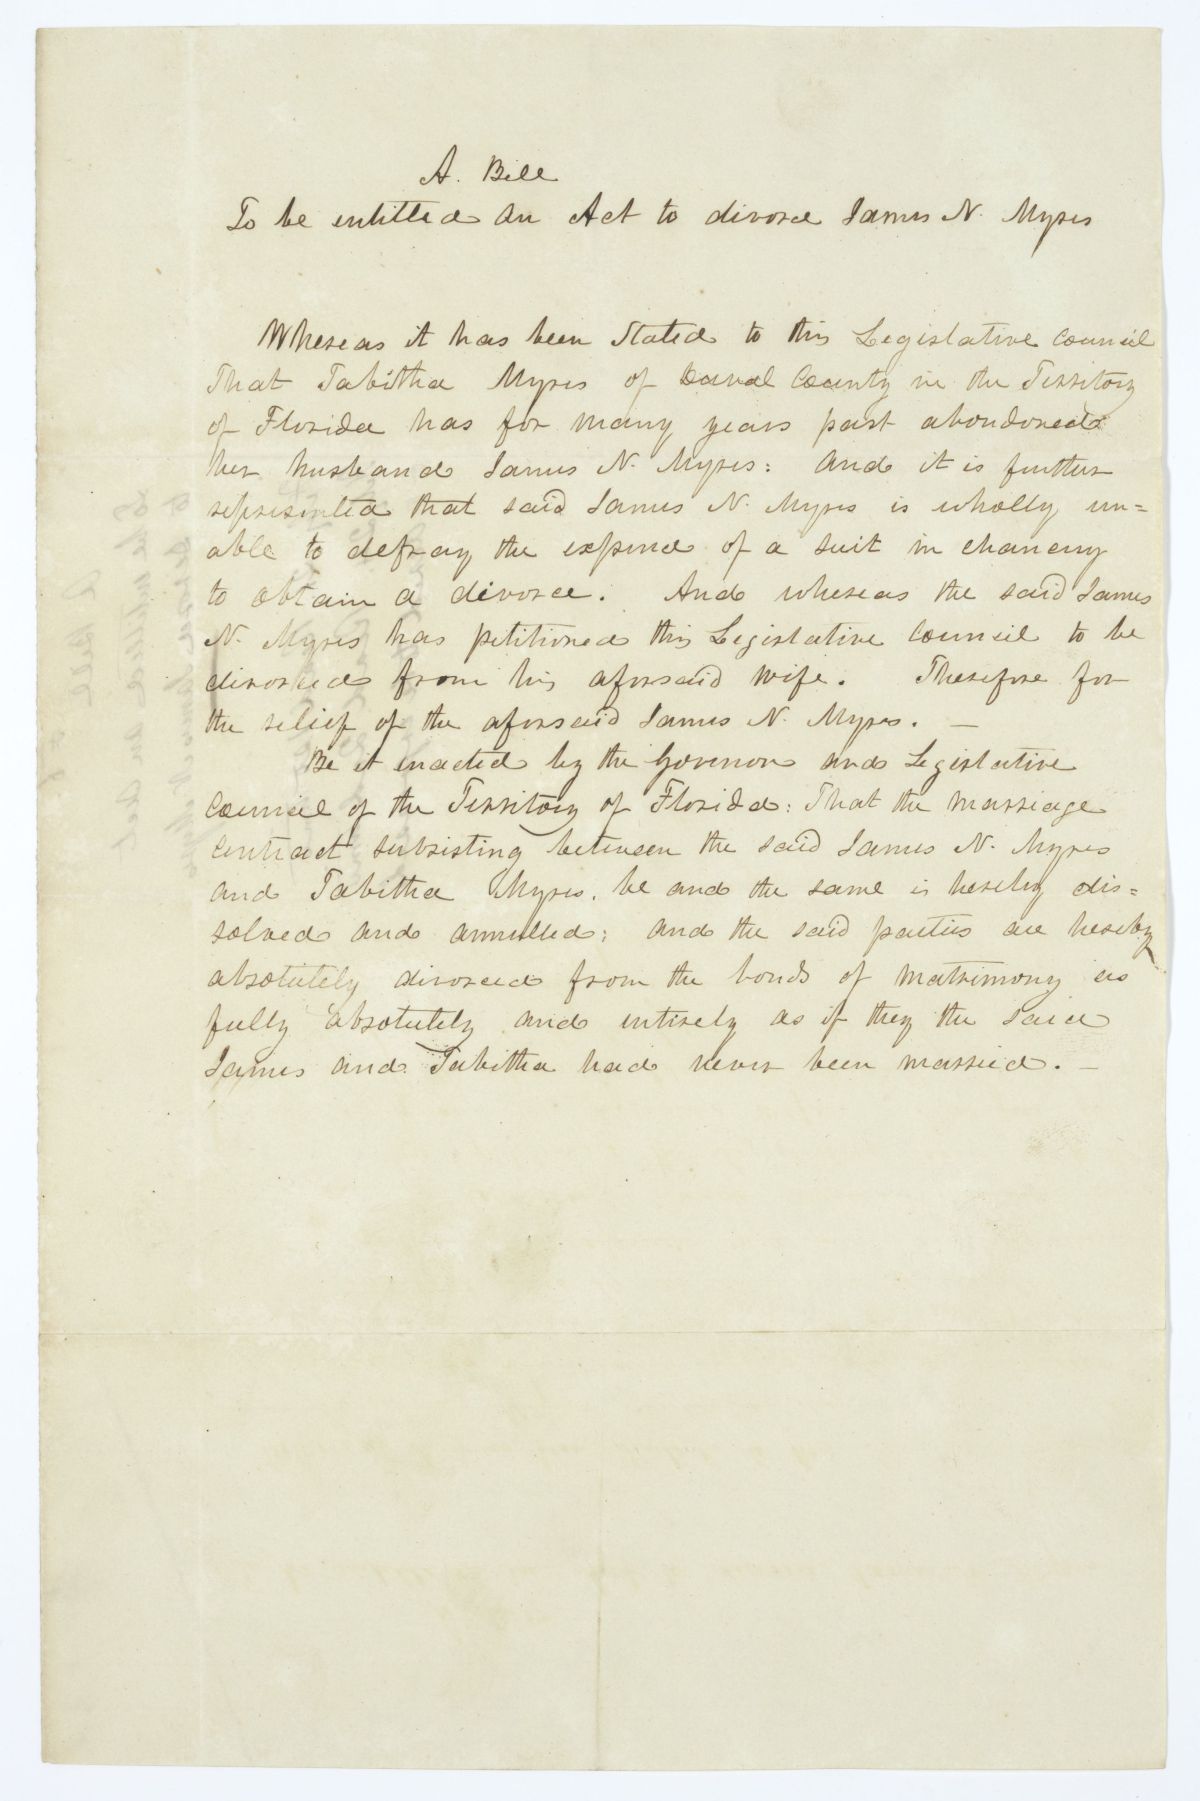 A. Bill
To be entitled An Act to divorce James N. Myres
Whereas it has been Stated to this Legislative Council
That Tabitha Myres of Duval County in the Territory
of Florida has for many years past abondoned
her husband James N. Myres: And it is further
represented that said James N. Myres is wholly un=
able to defray the expence of a suit in chancery
to obtain a divorce. And whereas the said James
N. Myres has petitioned this Legislative Council to be
divorced from his aforsaid wife. Therefore for
the relief of the aforsaid James N. Myres. —
Be it enacted by the Governor and Legislative
Council of the Territory of Florida: That the marriage
contract subsisting between the said James N. Myres
and Tabitha Myres, be and the same is hereby dis=
solved and annulled: and the said parties are hereby
absolutely divorced from the bonds of matrimony as
fully absolutely and entirely as if they the said
James and Tabitha had never been married. —